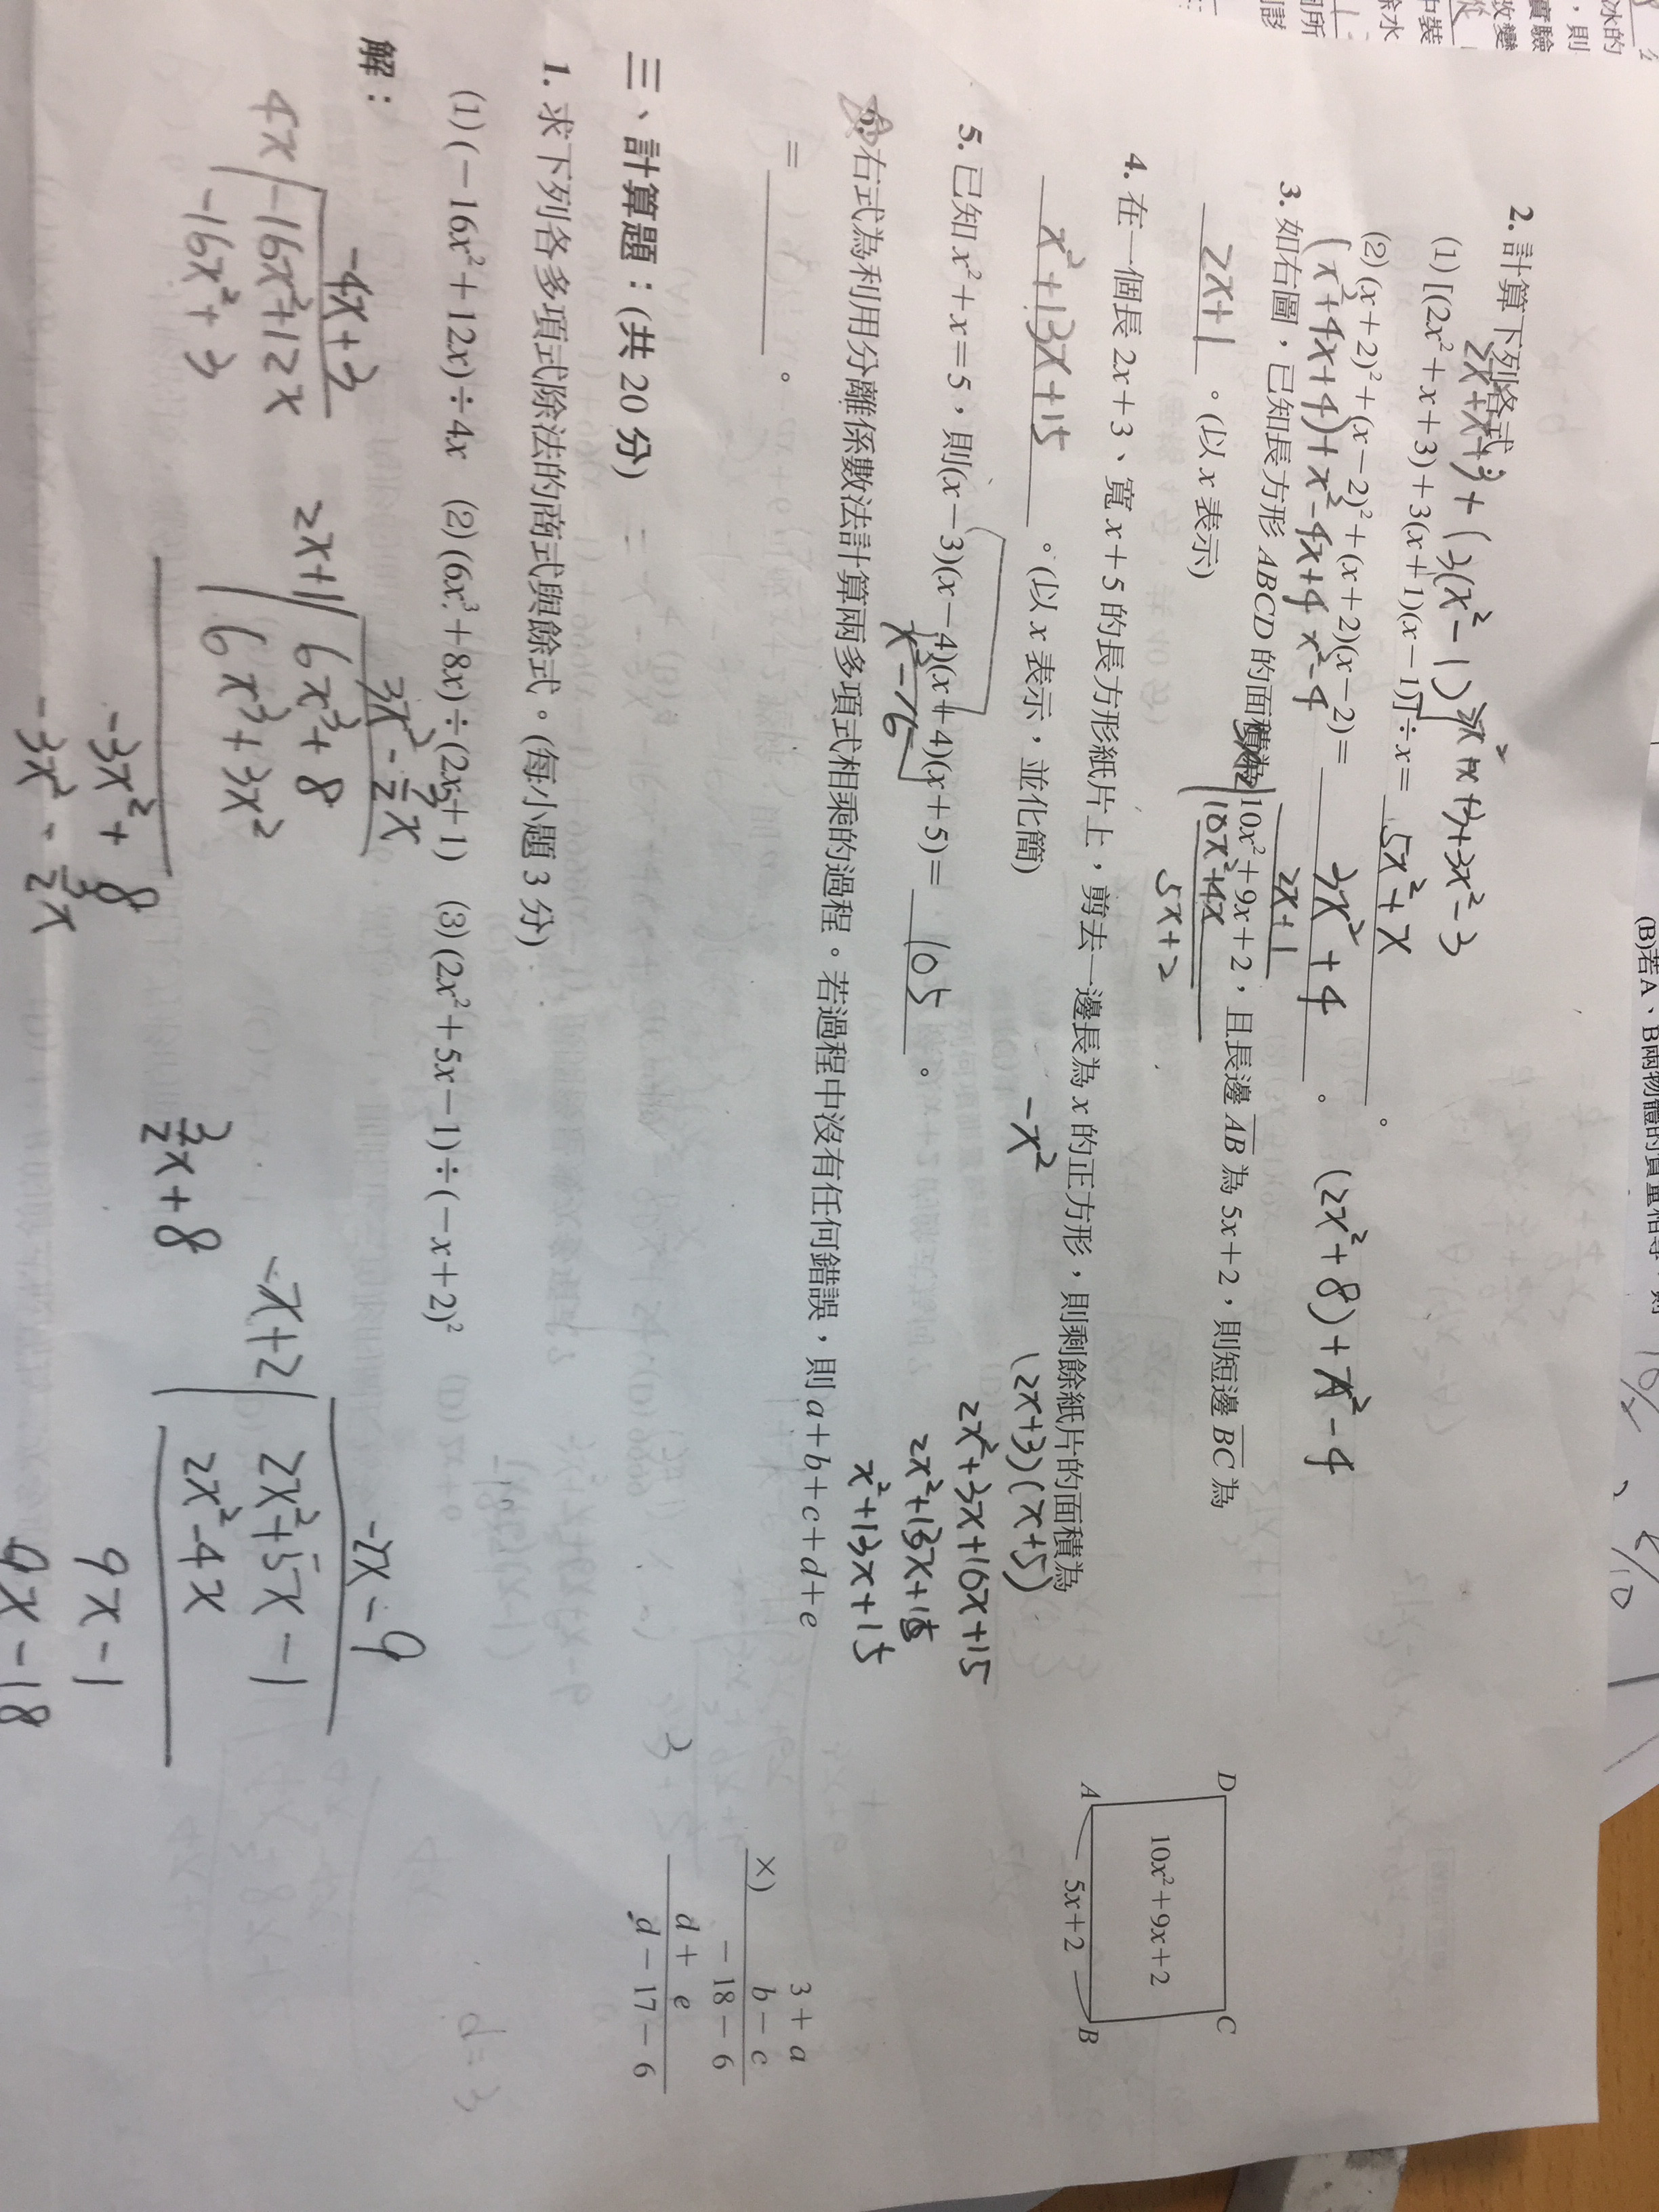 2. 計算下列各式
2x+x+3+(3(x²-1) 2x²+x+3+3x²-3
(1) [(2x²+x+3)+3(x+1)(x-1)]÷x= 5x²+x 。
(2) (x+2)²+(x-2)²+(x+2)(x-2)= 3x²+4 。
(x²+4x+4)+x²-4x+4 x²-4 (2x²+8)+x²-4
3. 如右圖,已知長方形 ABCD 的面積為 10x²+9x+2,且長邊 AB 為 5x+2,則短邊 BC 為
2x+1 。(以 x 表示)
2x+1
10x²+4x
5x+2
D C
10x²+9x+2
A 5x+2 B
4. 在一個長 2x+3、寬 x+5 的長方形紙片上,剪去一邊長為 x 的正方形,則剩餘紙片的面積為
x²+13x+15 。(以 x 表示,並化簡)
-x²
(2x+3)(x+5)
2x²+3x+10x+15
2x²+13x+15
x²+13x+15
5. 已知 x²+x=5,則(x-3)(x-4)(x+4)(x+5)= 105 。
x²-16
6. 右式為利用分離係數法計算兩多項式相乘的過程。若過程中沒有任何錯誤,則 a+b+c+d+e
= 。
3+a
×) b-c
-18-6
d+ e
d-17-6
三、計算題:(共 20 分)
1. 求下列各多項式除法的商式與餘式。(每小題 3 分)
(1) (-16x²+12x)÷4x (2) (6x³+8x)÷(2x+1) (3) (2x²+5x-1)÷(-x+2)²
d=3
解:
-4x+3
4x -16x²+12x
-16x²+3
3x²-3/2x
2x+1 6x³+8
6x³+3x²
-3x²+8
-3x²-3/2x
3/2x+8
-2x-9
-x+2 2x²+5x-1
2x²-4x
9x-1
9x-18